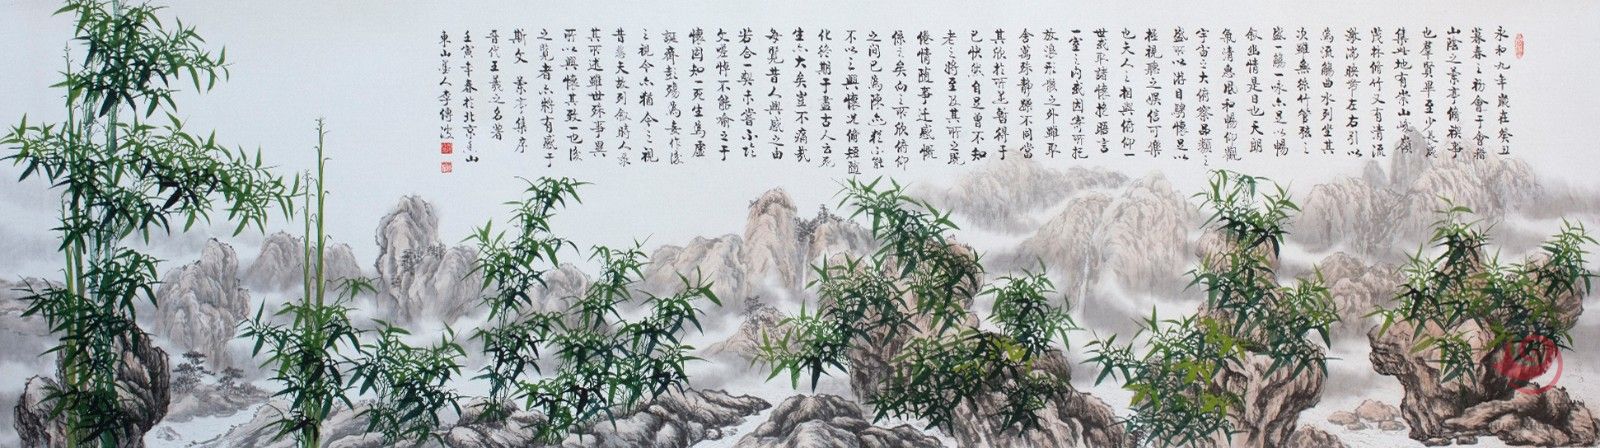 永和九年歲在癸丑
暮春之初會于會稽
山陰之蘭亭脩禊事
也群賢畢至少長咸
集此地有崇山峻嶺
茂林脩竹又有清流
激湍暎帶左右引以
為流觴曲水列坐其
次雖無絲竹管弦之
盛一觴一詠亦足以暢
敘幽情是日也天朗
氣清惠風和暢仰觀
宇宙之大俯察品類之
盛所以游目騁懷足以
極視聽之娛信可樂
也夫人之相與俯仰一
世或取諸懷抱晤言
一室之內或因寄所托
放浪形骸之外雖取
舍萬殊靜躁不同當
其欣於所遇暫得于
己快然自足曾不知
老之將至及其所之既
倦情隨事遷感慨
係之矣向之所欣俯仰
之間已為陳跡猶不能
不以之興懷況脩短隨
化終期于盡古人云死
生亦大矣豈不痛哉
每覽昔人興感之由
若合一契未嘗不臨
文嗟悼不能喻之于
懷固知一死生為虛
誕齊彭殤為妄作後
之視今亦猶今之視
昔悲夫故列敘時人錄
其所述雖世殊事異
所以興懷其致一也後
之覽者亦將有感于
斯文 蘭亭集序
晉代王羲之名著
壬寅年春於北京山
東山墨人李傳波